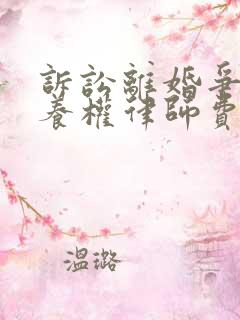 訴訟離婚爭
養權律師費
溫璐